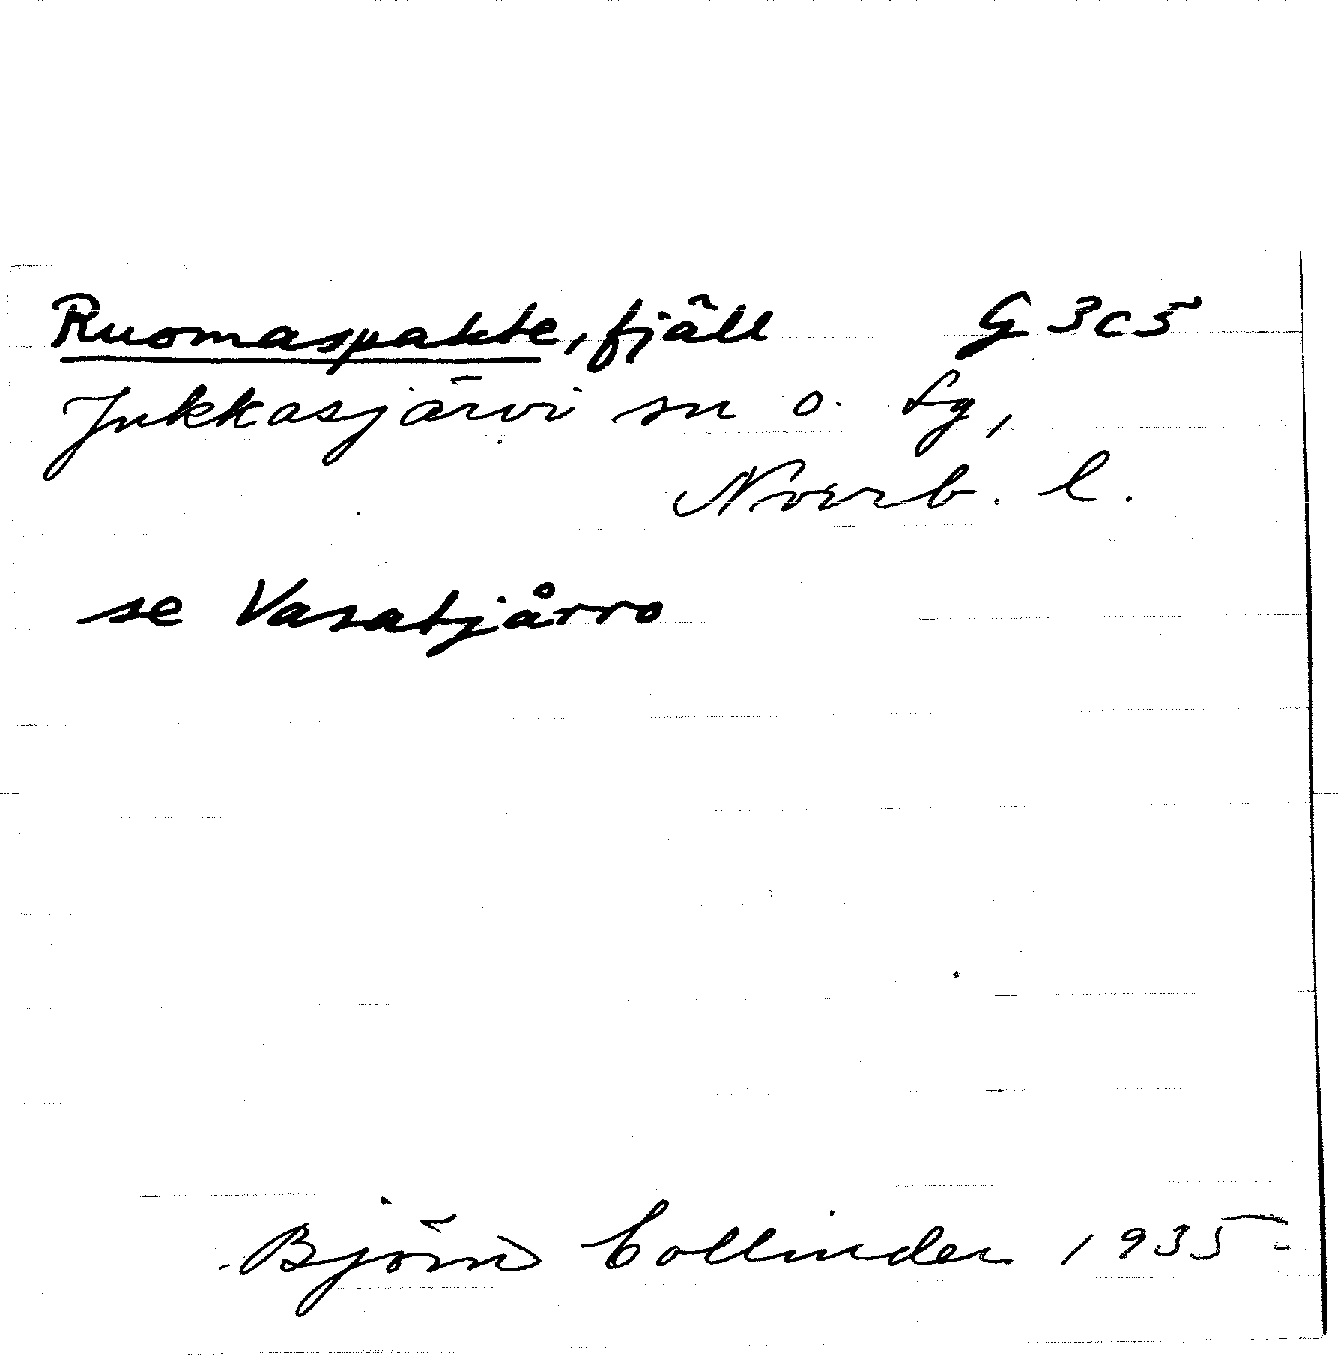 Ruomaspakte, fjäll G 3c5
Jukkasjärvi sn o. tg,
Norrb. l.
se Vasatjårro
Björn Collinder 1935